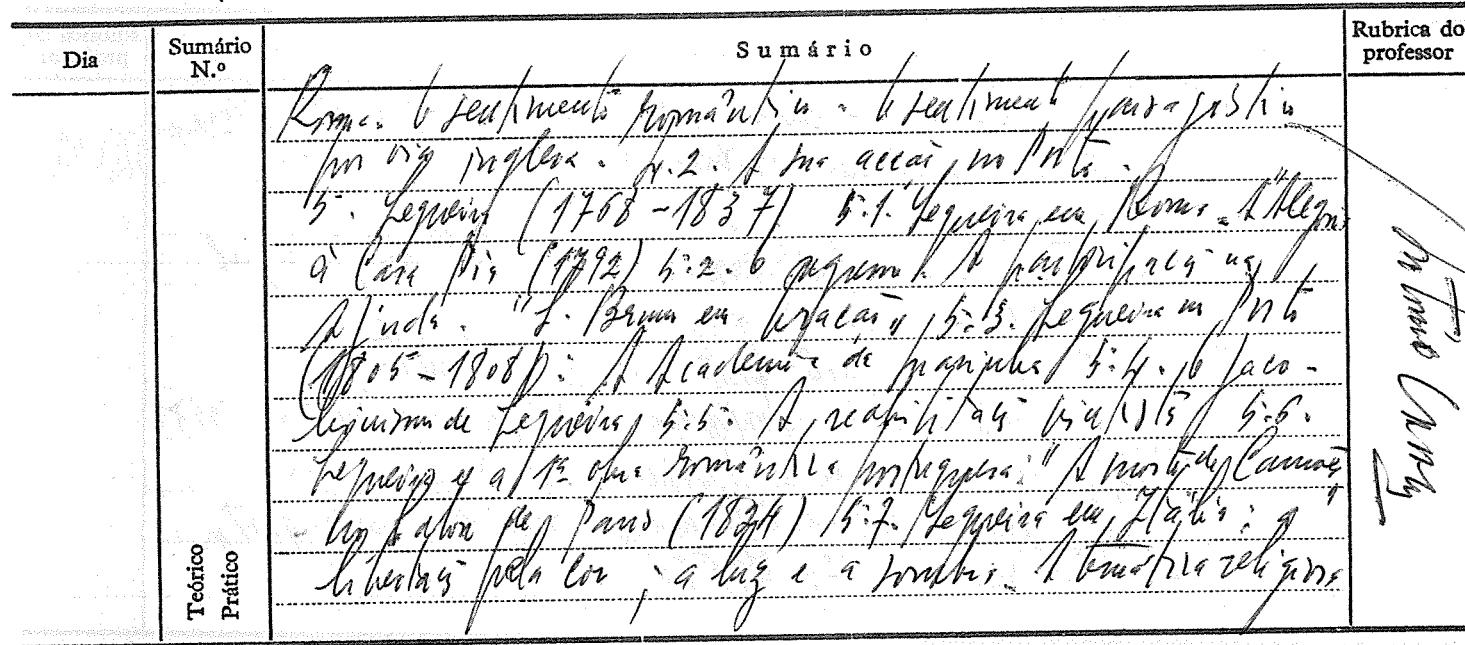 Dia
Sumário N.º
Sumário
Rubrica do professor
Roma. O sentimento romântico. O sentimento paisagístico
por via inglesa. 4.2. A sua acção no Porto.
5. Sequeira (1768-1837) 5.1. Sequeira em Roma. A "Alegoria
à Casa Pia (1792) 5.2. O regresso. A participação na
Ajuda. "S. Bruno em oração" 5.3. Sequeira no Porto
(1805-1808): A Academia de Marinha 5.4. O jaco-
binismo de Sequeira 5.5. A reabilitação vintista 5.6.
Sequeira e a 1ª obra romântica portuguesa: "A morte de Camões"
no Salon de Paris (1824) 5.7. Sequeira em Itália: a
libertação pela cor; a luz e a sombra. A temática religiosa
Teórico
Prático